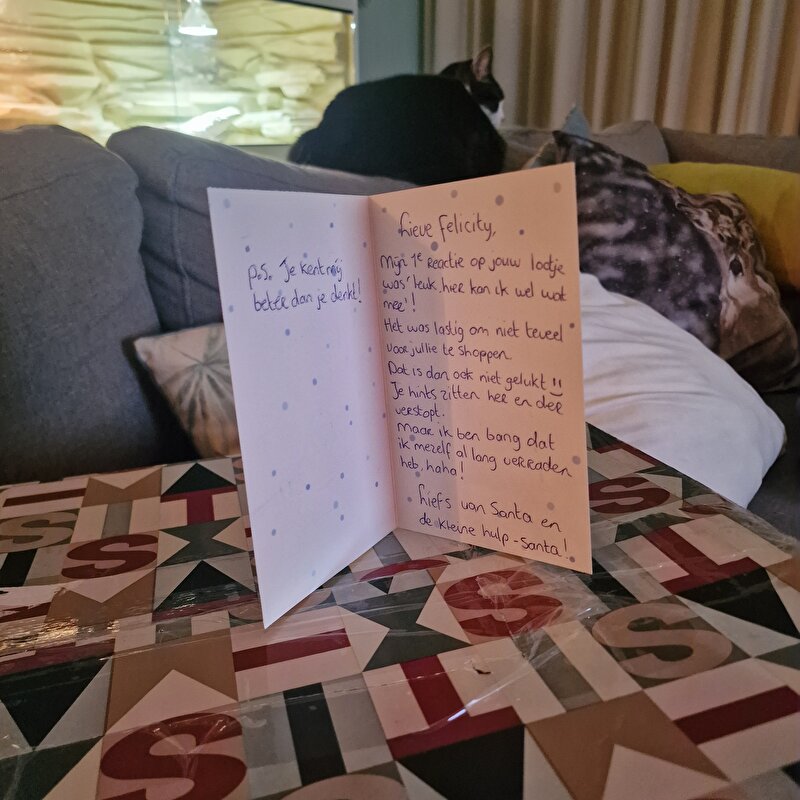 p.s. Je kent mij
beter dan je denkt!
Lieve Felicity,
Mijn 1e reactie op jouw lootje
was 'leuk, hier kan ik wel wat
mee'!
Het was lastig om niet teveel
voor jullie te shoppen.
Dat is dan ook niet gelukt :)
Je hints zitten her en der
verstopt.
maar ik ben bang dat
ik mezelf al lang verraden
heb, haha!
Liefs van Santa en
de kleine hulp-Santa!